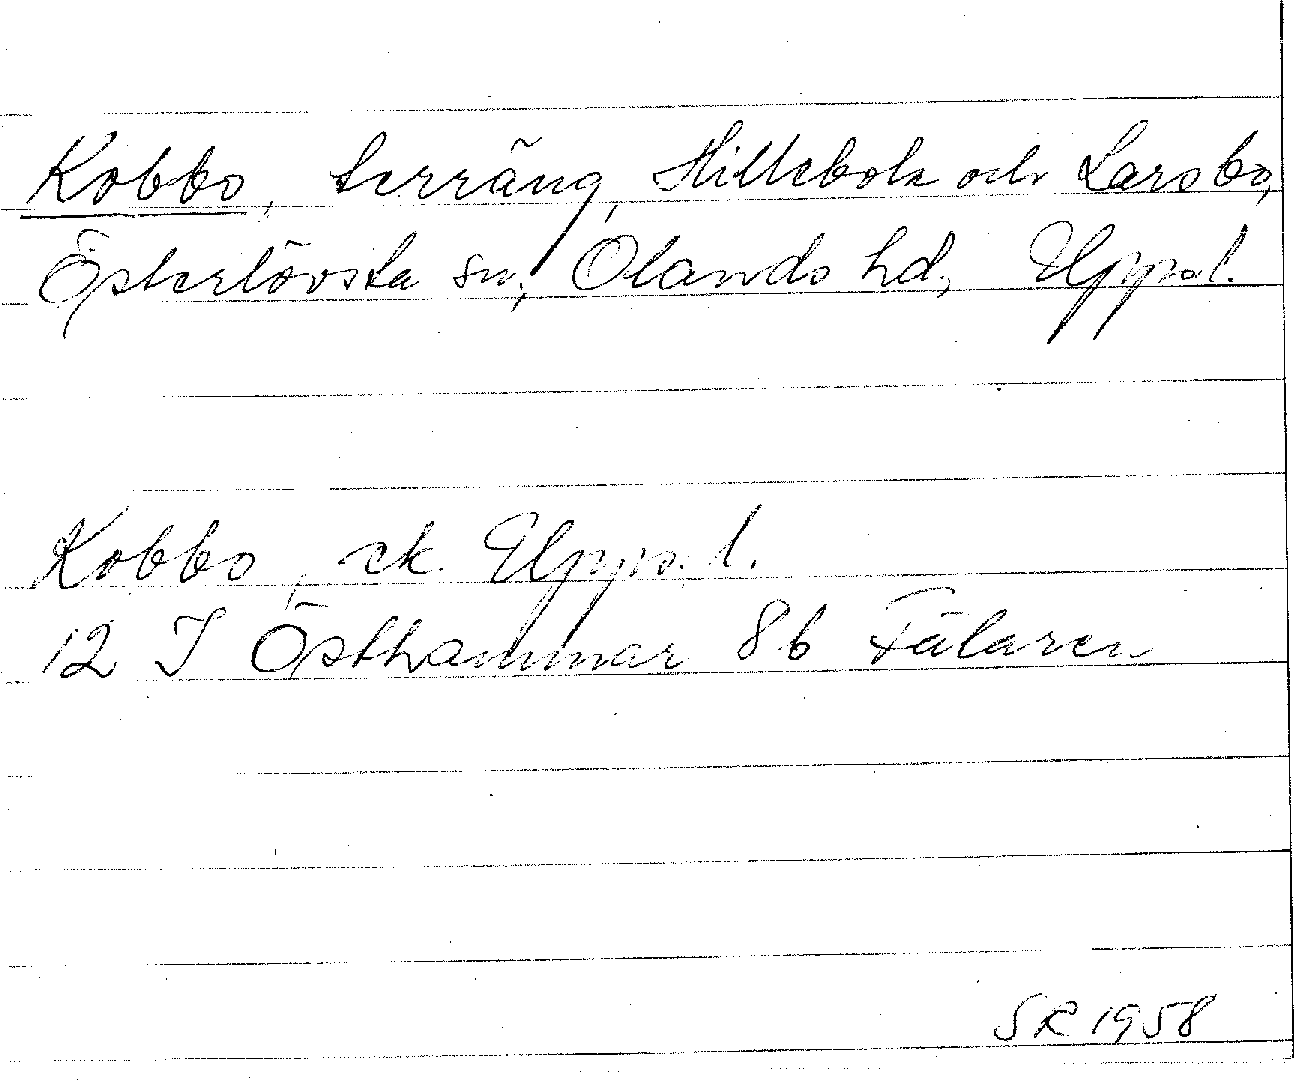 Kobbo, terräng, Hillebola och Larsbo,
Österlövsta sn, Olands hd, Uppsl.
Kobbo, ek. Upps. l.
12 I Östhammar 8b Fälaren
SR 1958